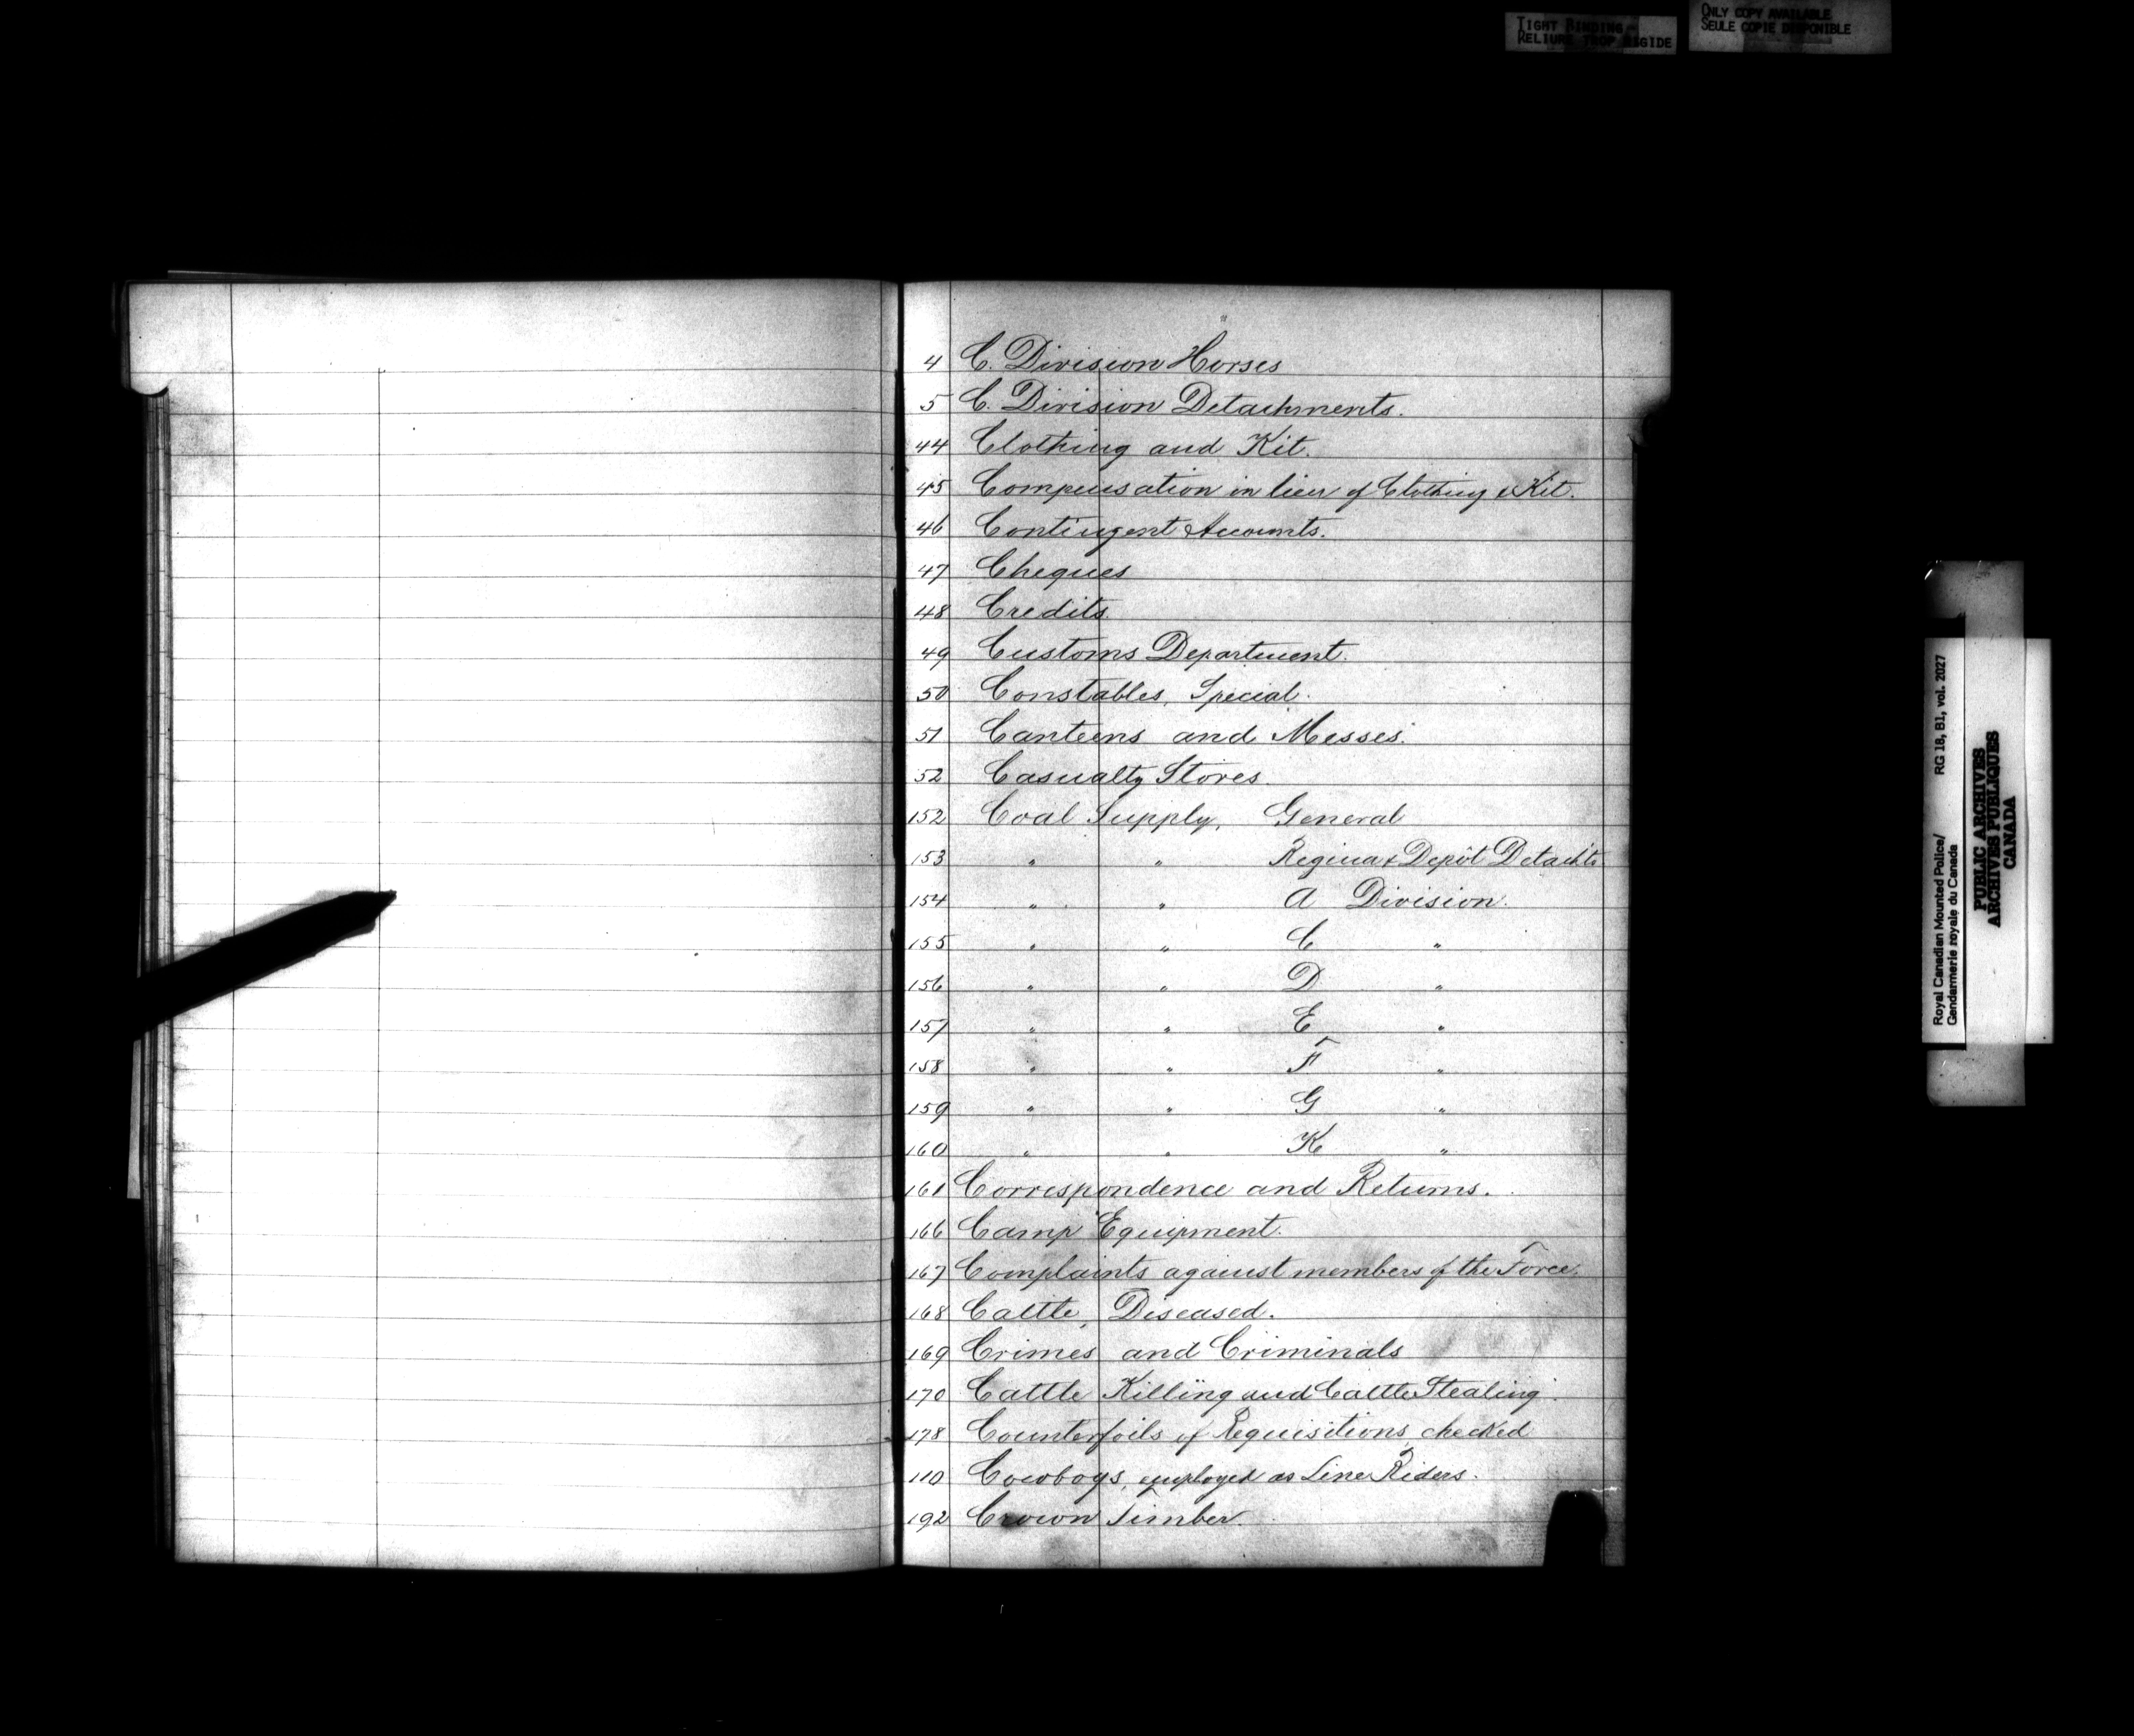 TIGHT BINDING
RELIURE TROP RIGIDE
ONLY COPY AVAILABLE
SEULE COPIE DISPONIBLE
4 C. Division Horses
5 C. Division Detachments.
44 Clothing and Kit.
45 Compensation in lieu of Clothing & Kit.
46 Contingent Accounts.
47 Cheques
48 Credits.
49 Customs Department.
50 Constables, Special.
51 Canteens and Messes.
52 Casualty Stores.
152 Coal Supply, General
153 " " Regina & Depôt Detachts
154 " " A Division.
155 " " C "
156 " " D "
157 " " E "
158 " " F "
159 " " G "
160 " " K "
161 Correspondence and Returns.
166 Camp Equipment.
167 Complaints against members of the Force.
168 Cattle, Diseased.
169 Crimes and Criminals
170 Cattle Killing and Cattle Stealing.
178 Counterfoils of Requisitions checked
110 Cowboys, employed as Line Riders.
192 Crown Timber.
Royal Canadian Mounted Police/ RG 18, B1, vol. 2027
Gendarmerie royale du Canada
PUBLIC ARCHIVES
ARCHIVES PUBLIQUES
CANADA